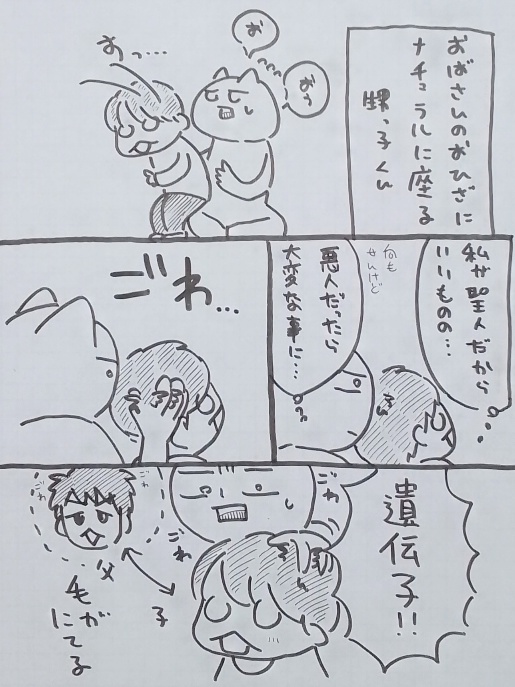 おばさんのおひざに
ナチュラルに座る
甥っ子くん
お
おう
すっ…
私が聖人だから
いいものの…
何も
せんけど
悪人だったら
大変な事に…
ごわ…
遺伝子!!
ごわ
ごわ
ごわ
ごわ
父
子
毛が
にてる